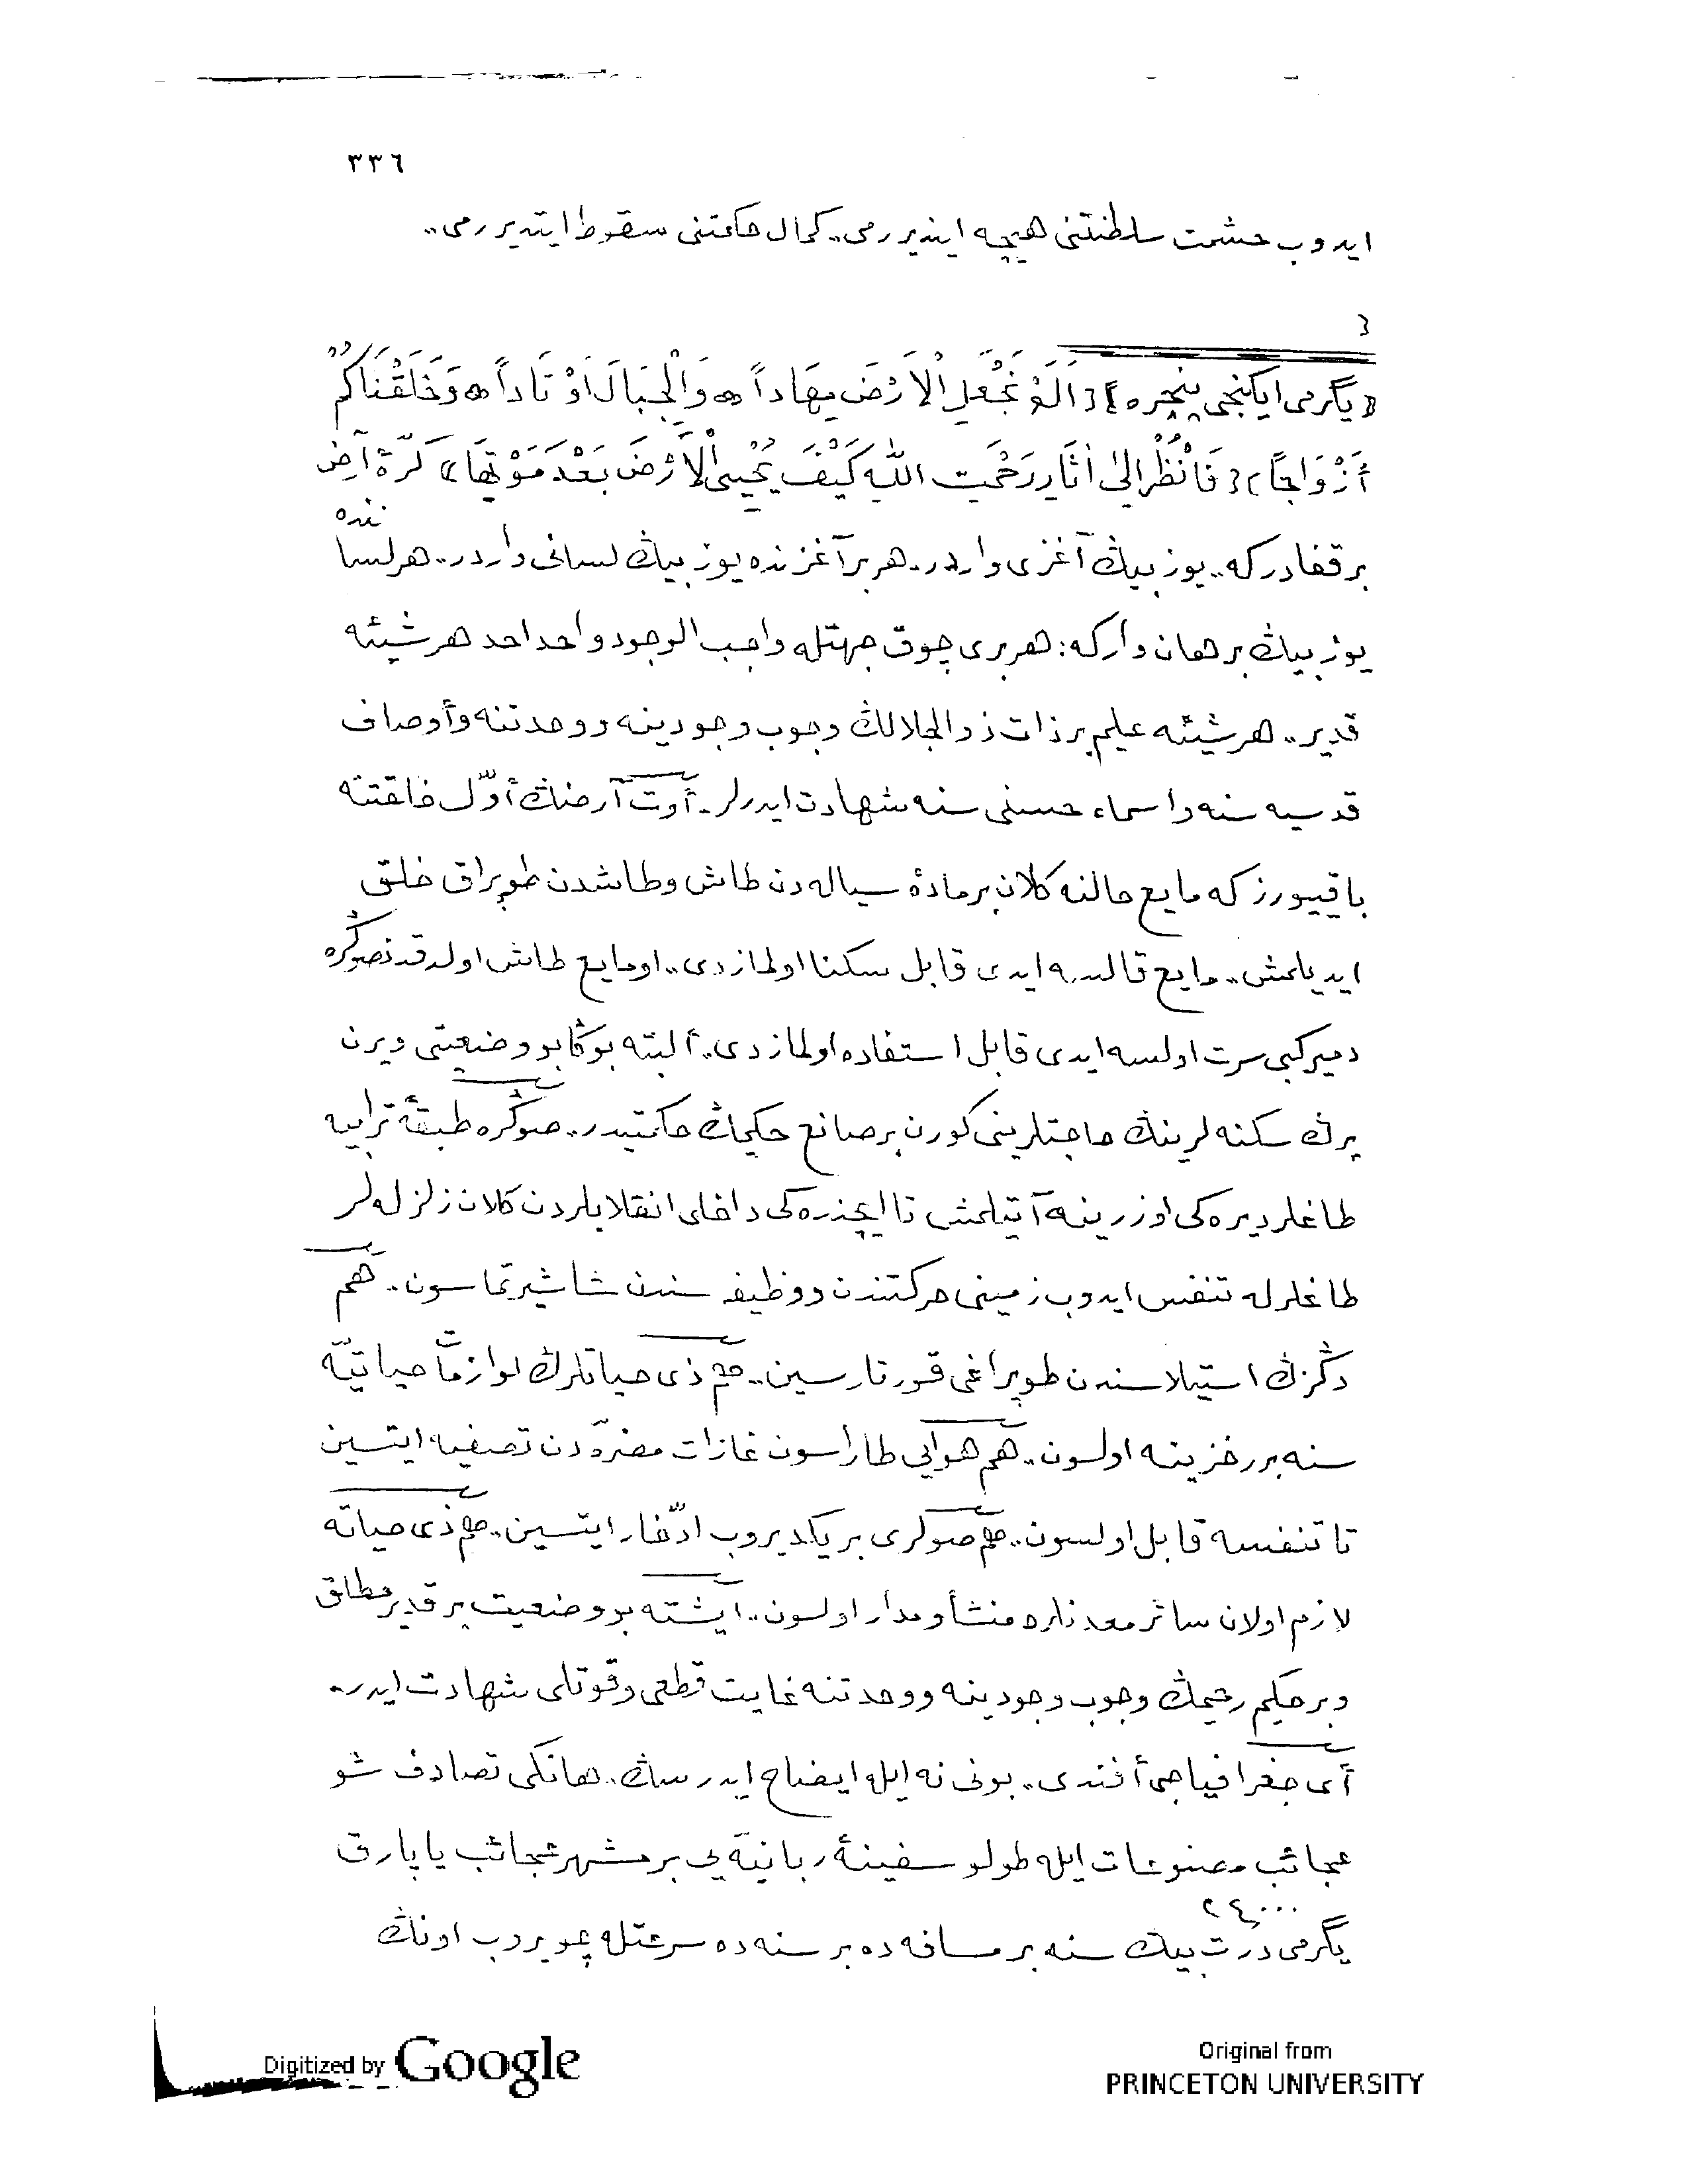 ٣٣٦
ايدوب حشمت سلطنتنى هيچه اينديررمى.. كمال حكمتنى سقوط ايتديررمى..
﴿يگرمى ايكنجى پنجره﴾ ﴿اَلَمْ نَجْعَلِ الْاَرْضَ مِهَاداً ۞ وَالْجِبَالَ اَوْتَاداً ۞ وَخَلَقْنَاكُمْ
أَزْوَاجاً﴾ ﴿فَانْظُرْ اِلٰى اٰثَارِ رَحْمَتِ اللّٰهِ كَيْفَ يُحْيِى الْاَرْضَ بَعْدَ مَوْتِهَا﴾ كرّۀ آرض
بر قفادركه.. يوز بيڭ آغزى واردر.. هر بر آغزنده يوز بيڭ لسانى واردر.. هر لساننده
يوز بيڭ برهان واركه: هر برى چوق جهتله واجب الوجود واحد احد هر شيئه
قدير.. هر شيئه عليم بر ذات ذوالجلالڭ وجوب وجودينه ووحدتنه وأوصاف
قدسيه سنه واسماء حسنى سنه شهادت ايدرلر.. أوت آرضڭ أوّل خلقتنه
باقييورزكه مايع حالنه كلان بر مادۀ سياله دن طاش وطاشدن طوپراق خلق
ايديلمش.. مايع قالسه ايدى قابل سكنا اولمازدى.. او مايع طاش اولدقدنصوڭره
دمير كبى سرت اولسه ايدى قابل استفاده اولمازدى.. ألبته بوڭا بو وضعيتى ويرن
يرڭ سكنه لرينڭ حاجتلرينى كورن بر صانع حكيمڭ حكمتيدر.. صوڭره طبقۀ ترابيه
طاغلر ديره كى اوزرينه آتيلمش تا ايچنده كى داخلى انقلابلردن كلان زلزله لر
طاغلرله تنفس ايدوب زمينى حركتندن ووظيفه سندن شاشيرتماسون.. هم
دڭزڭ استيلاسندن طوپراغى قورتارسين.. هم ذى حياتلرڭ لوازمات حياتيّه
سنه بر خزينه اولسون.. هم هوايى طاراسون غازات مضرّه دن تصفيه ايتسين
تا تنفسه قابل اولسون.. هم صولرى بريكديروب ادّخار ايتسين.. هم ذى حياته
لازم اولان سائر معدنلره منشأ ومدار اولسون.. ايشته بو وضعيت بر قدير مطلق
وبر حكيم رحيمڭ وجوب وجودينه ووحدتنه غايت قطعى وقوتلى شهادت ايدر..
أى جغرافياجى أفندى.. بونى نه ايله ايضاح ايدرسڭ.. هانكى تصادف شو
عجائب مصنوعات ايله طولو سفينۀ ربانيّه يى بر مشهر عجائب ياپارق
٢٤٠٠٠
يگرمى درت بيڭ سنه بر مسافه ده بر سنه ده سرعتله چويروب اونڭ
Digitized by Google
Original from
PRINCETON UNIVERSITY